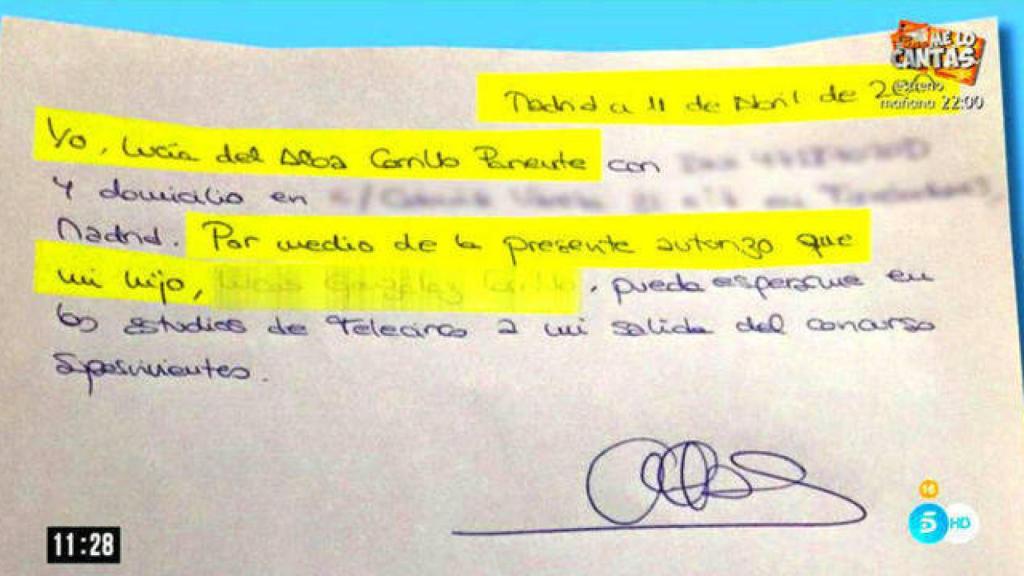 ME LO
CANTAS
estreno
mañana 22:00
Madrid a 11 de Abril de
Yo, Lucía del Alba Carrillo Pariente con
y domicilio en
Madrid. Por medio de la presente autorizo que
mi hijo, , pueda esperarme en
los estudios de Telecinco a mi salida del concurso
Supervivientes.
16
5 HD
11:28